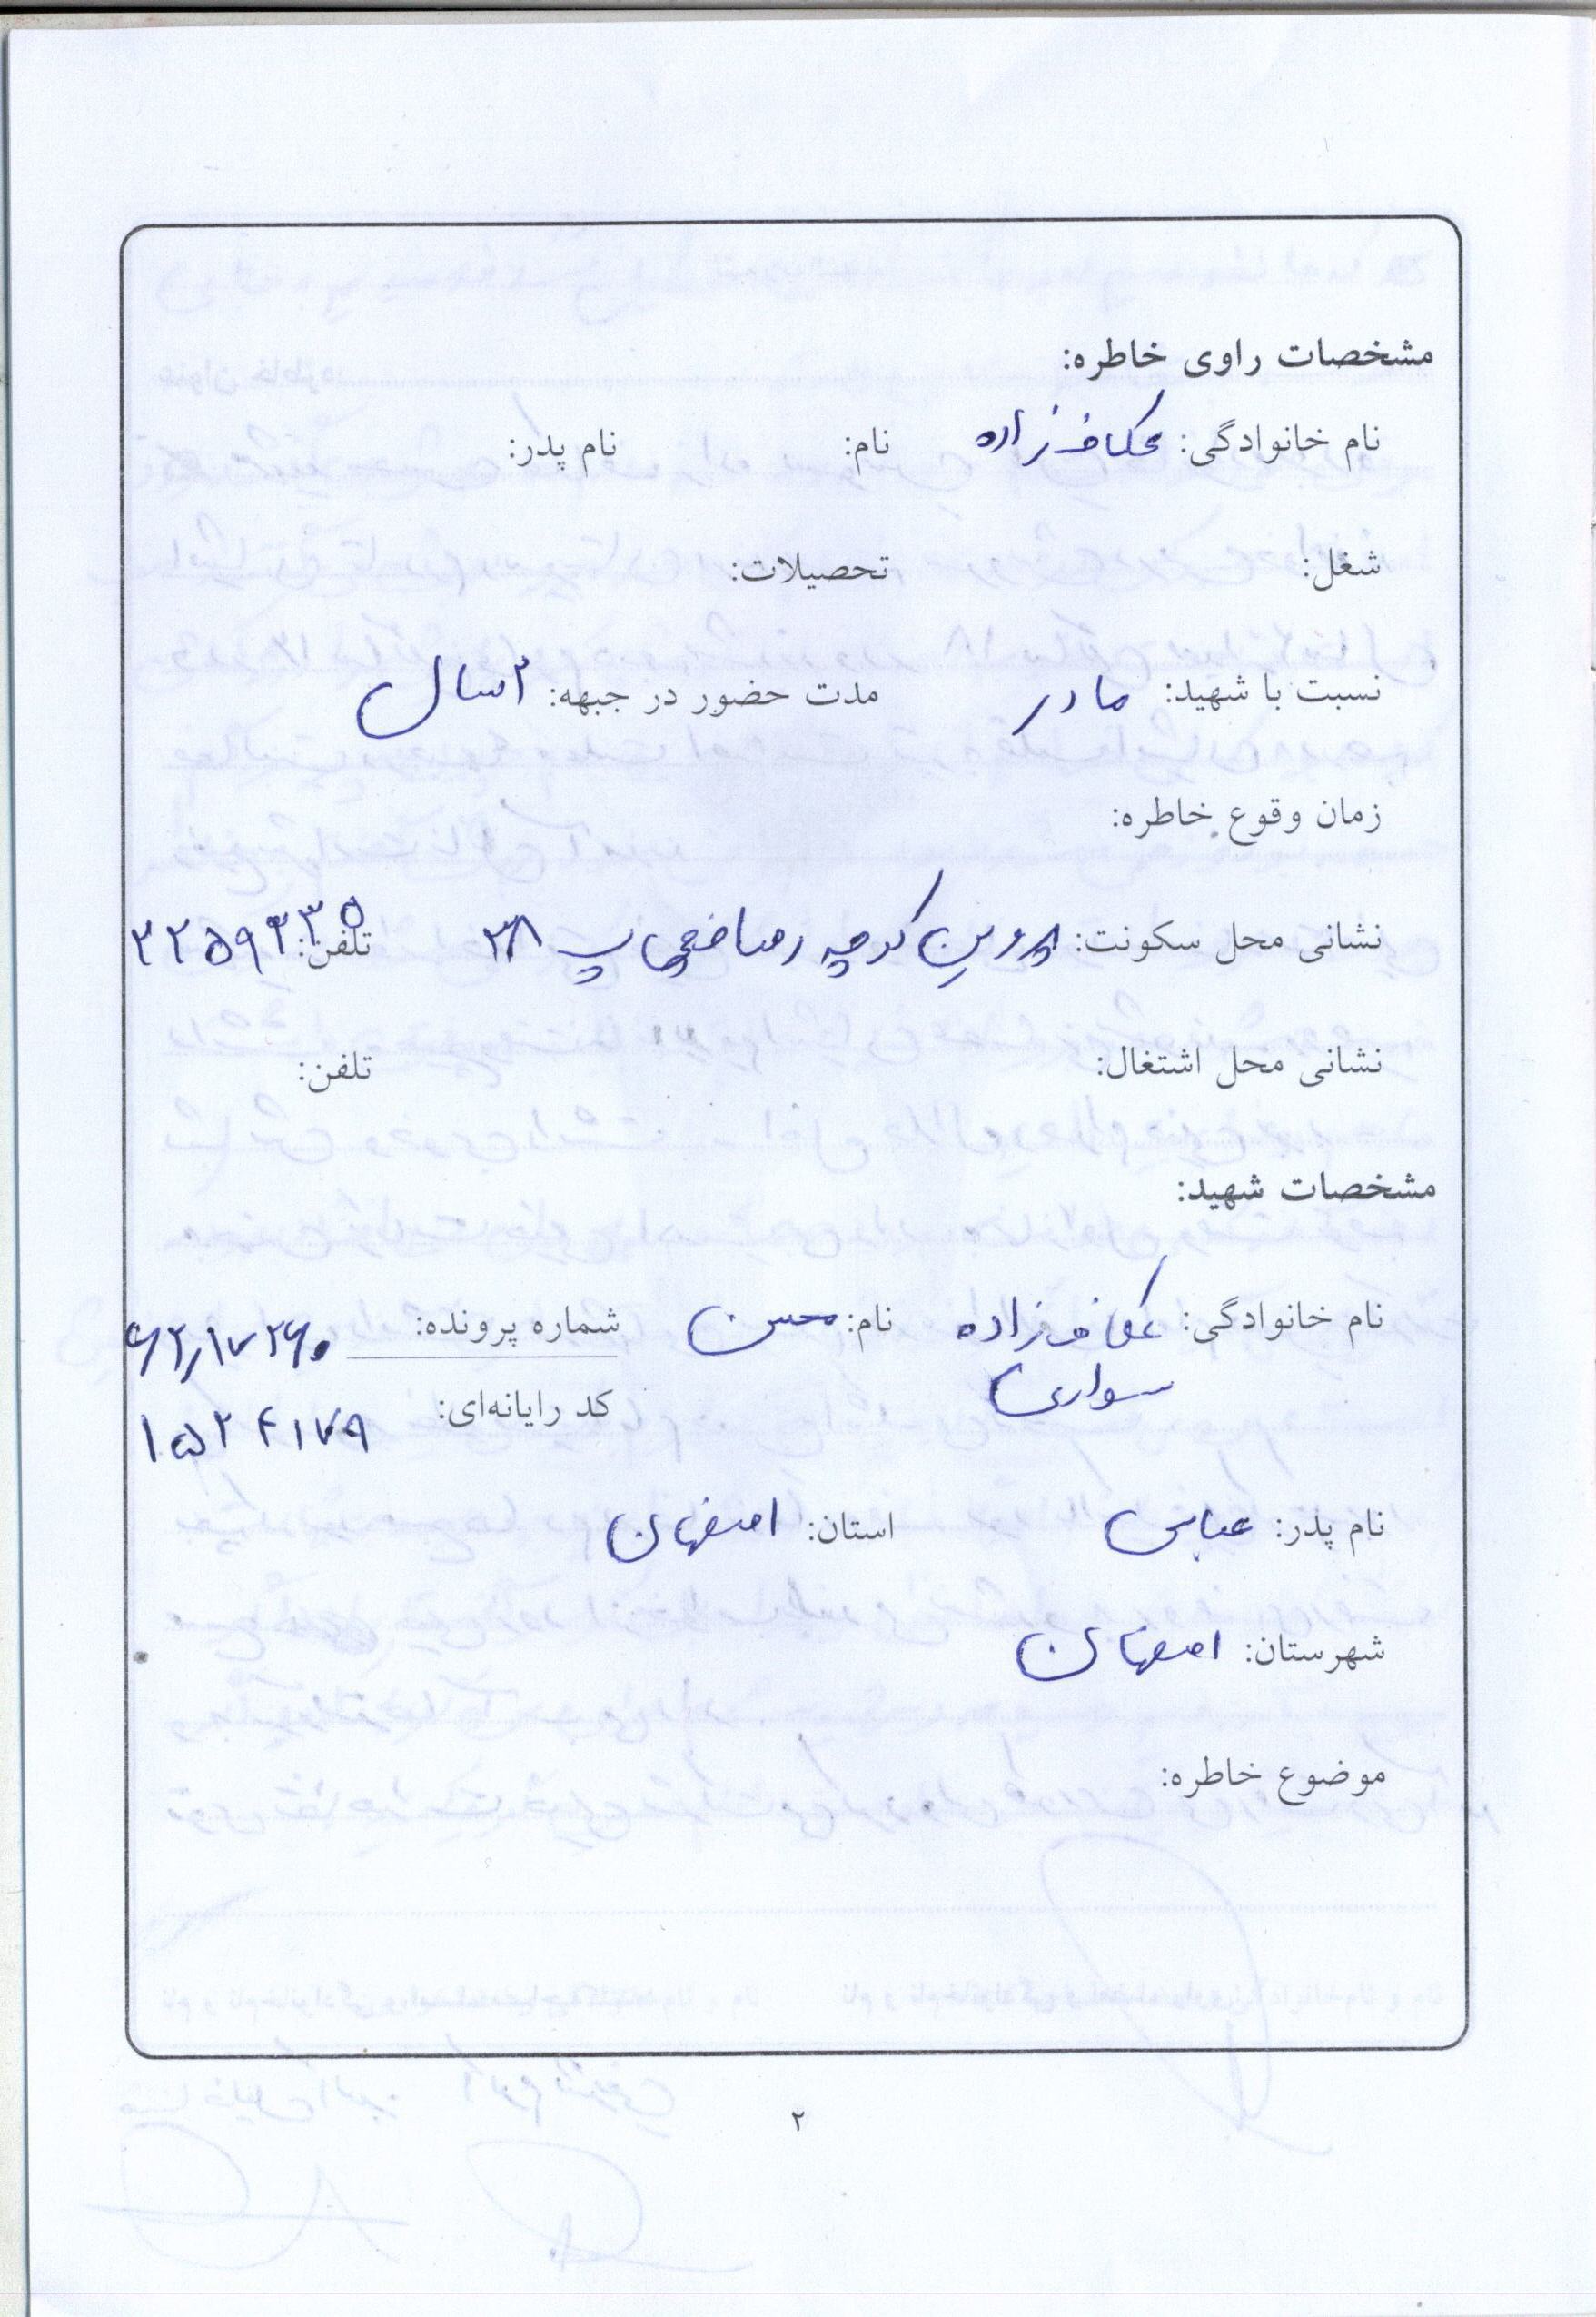 مشخصات راوی خاطره:
نام خانوادگی: عکاف زاده نام: نام پدر:
شغل: تحصیلات:
نسبت با شهید: مادر مدت حضور در جبهه: ۲ سال
زمان وقوع خاطره:
نشانی محل سکونت: پروین کوچه پ ۳۸ تلفن: ۲۲۵۹۳۳۵
نشانی محل اشتغال: تلفن:
مشخصات شهید:
نام خانوادگی: عکاف زاده نام: محسن شماره پرونده: ۶۲٫۱۷۲۶۰
سواری کد رایانه‌ای: ۱۵۲۴۱۷۹
نام پدر: عباس استان: اصفهان
شهرستان: اصفهان
موضوع خاطره:
۲